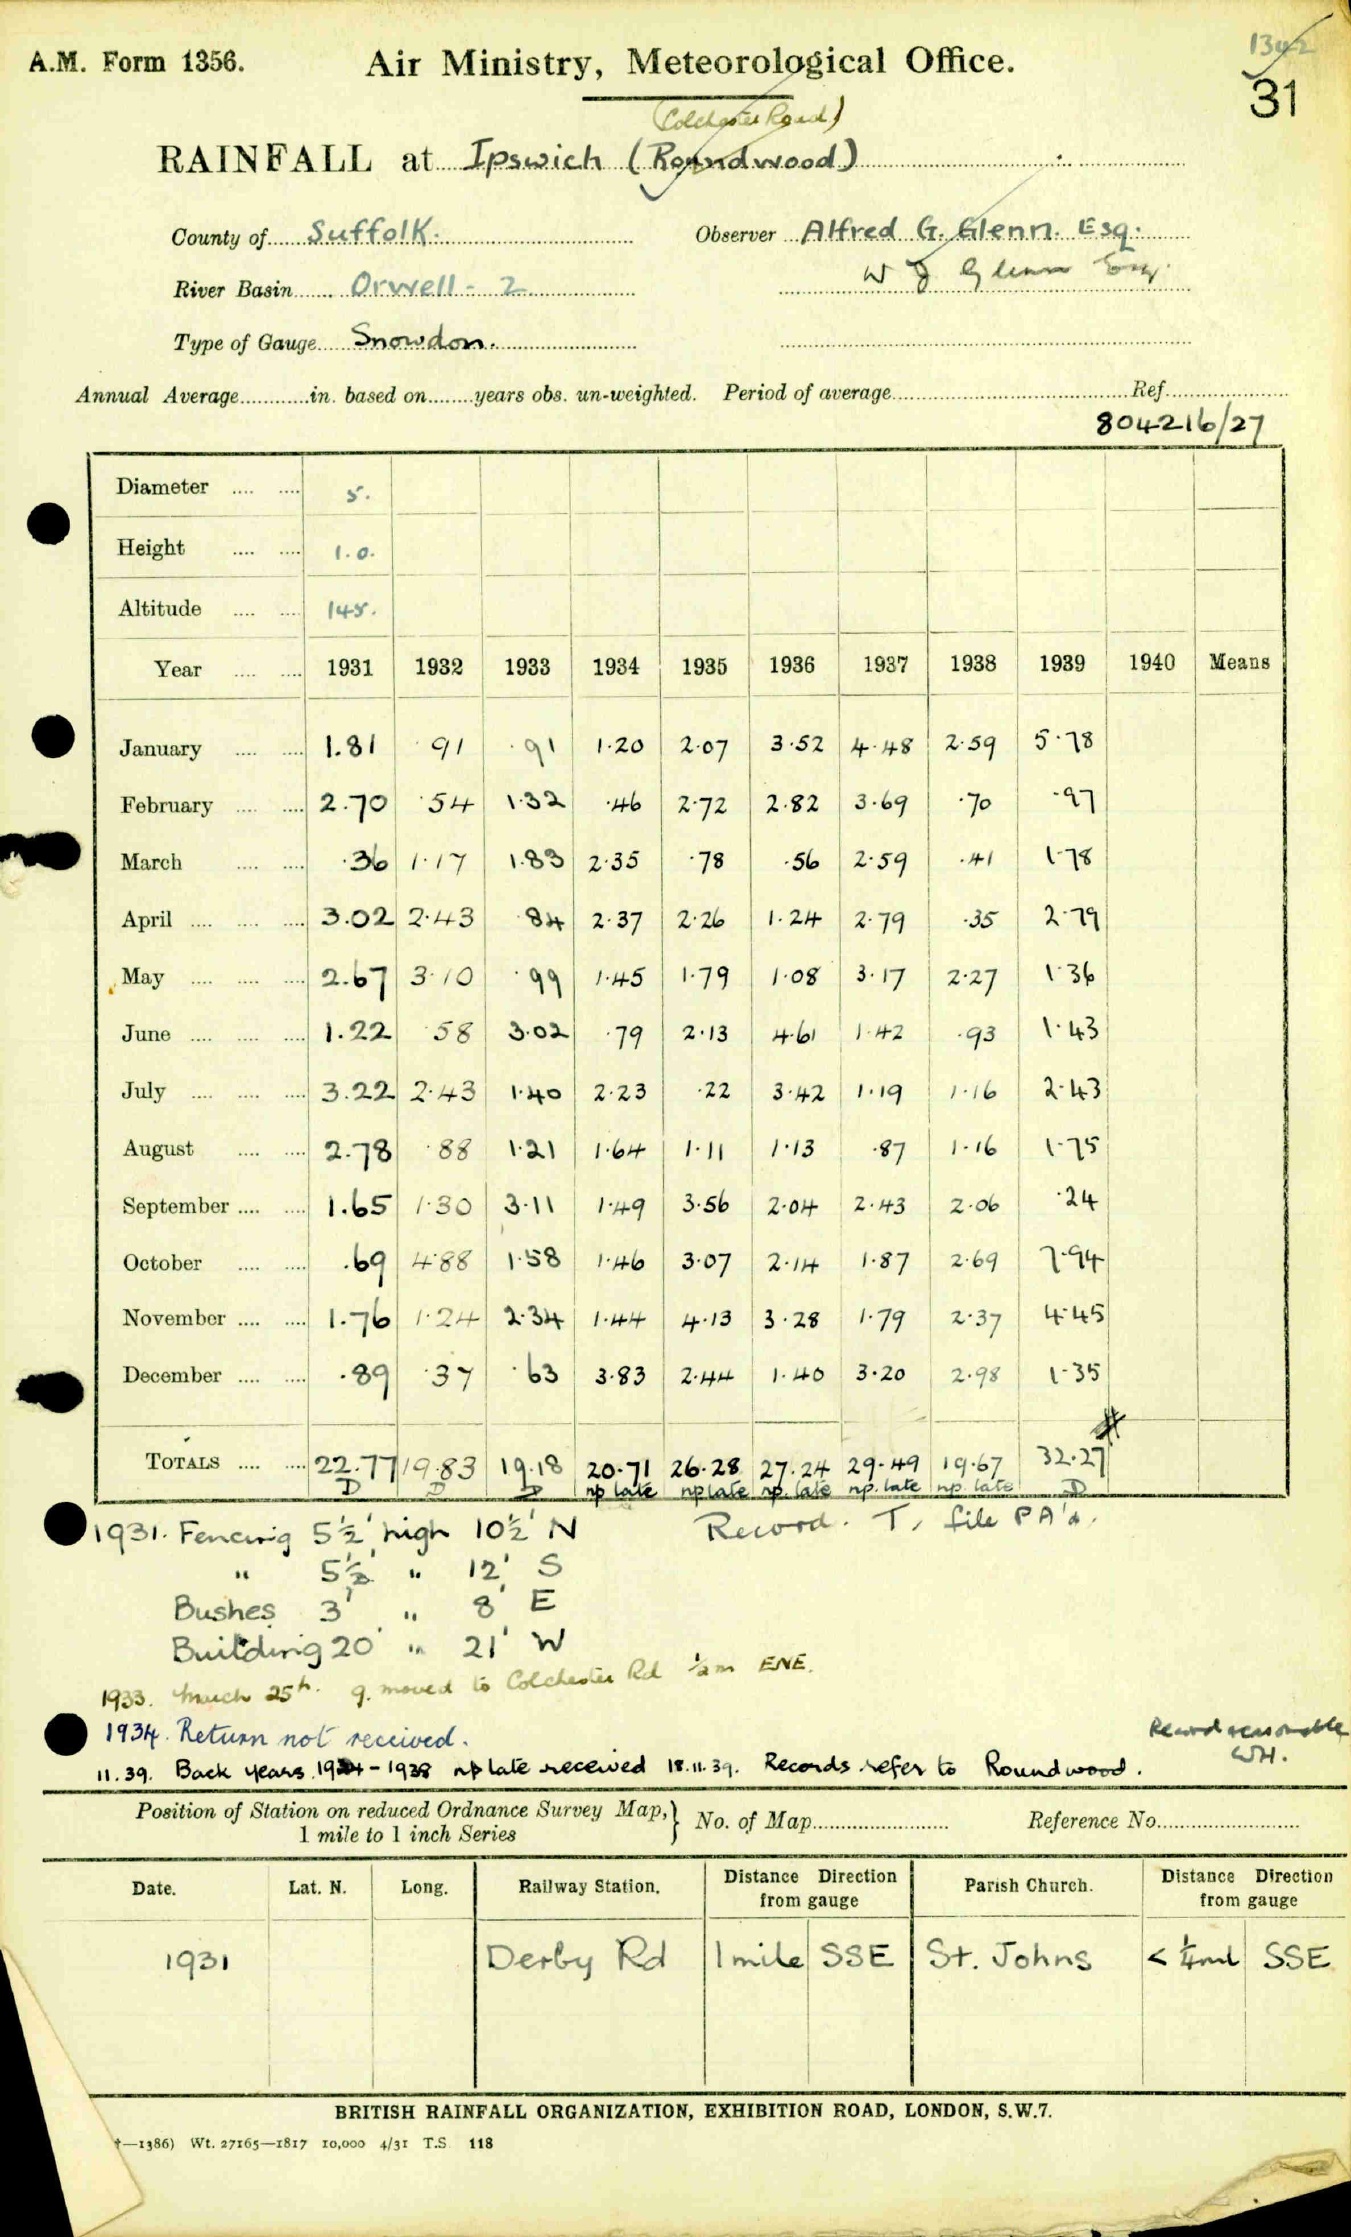 A.M. Form 1356.
Air Ministry, Meteorological Office.
1342
31
(Colchester Road)
RAINFALL at Ipswich (Roundwood)
County of Suffolk. Observer Alfred G. Glenn. Esq.
River Basin Orwell - 2 W J Glenn Esq.
Type of Gauge Snowdon.
Annual Average in. based on years obs. un-weighted. Period of average Ref.
804216/27
Diameter 5.
Height 1.0.
Altitude 145.
Year 1931 1932 1933 1934 1935 1936 1937 1938 1939 1940 Means
January 1.81 .91 .91 1.20 2.07 3.52 4.48 2.59 5.78
February 2.70 .54 1.32 .46 2.72 2.82 3.69 .70 .97
March .36 1.17 1.83 2.35 .78 .56 2.59 .41 1.78
April 3.02 2.43 .84 2.37 2.26 1.24 2.79 .35 2.79
May 2.67 3.10 .99 1.45 1.79 1.08 3.17 2.27 1.36
June 1.22 .58 3.02 .79 2.13 4.61 1.42 .93 1.43
July 3.22 2.43 1.40 2.23 .22 3.42 1.19 1.16 2.43
August 2.78 .88 1.21 1.64 1.11 1.13 .87 1.16 1.75
September 1.65 1.30 3.11 1.49 3.56 2.04 2.43 2.06 .24
October .69 4.88 1.58 1.46 3.07 2.14 1.87 2.69 7.94
November 1.76 1.24 2.34 1.44 4.13 3.28 1.79 2.37 4.45
December .89 .37 .63 3.83 2.44 1.40 3.20 2.98 1.35
TOTALS 22.77 19.83 19.18 20.71 26.28 27.24 29.49 19.67 32.27
D D D np late np late np. late np. late np. late D
1931. Fencing 5½' high 10½' N Record. T, file PA'd.
" 5½' " 12' S
Bushes 3' " 8' E
Building 20' " 21' W
1933. March 25th. g. moved to Colchester Rd ½m ENE.
1934. Return not received.
Record reasonable
WH.
11.39. Back years 1934 - 1938 np late received 18.11.39. Records refer to Roundwood.
Position of Station on reduced Ordnance Survey Map, 1 mile to 1 inch Series } No. of Map Reference No.
Date. Lat. N. Long. Railway Station. Distance Direction from gauge Parish Church. Distance Direction from gauge
1931 Derby Rd 1 mile SSE St. Johns < ¼ml SSE
BRITISH RAINFALL ORGANIZATION, EXHIBITION ROAD, LONDON, S.W.7.
—1386) Wt. 27165—1817 10,000 4/31 T.S. 118